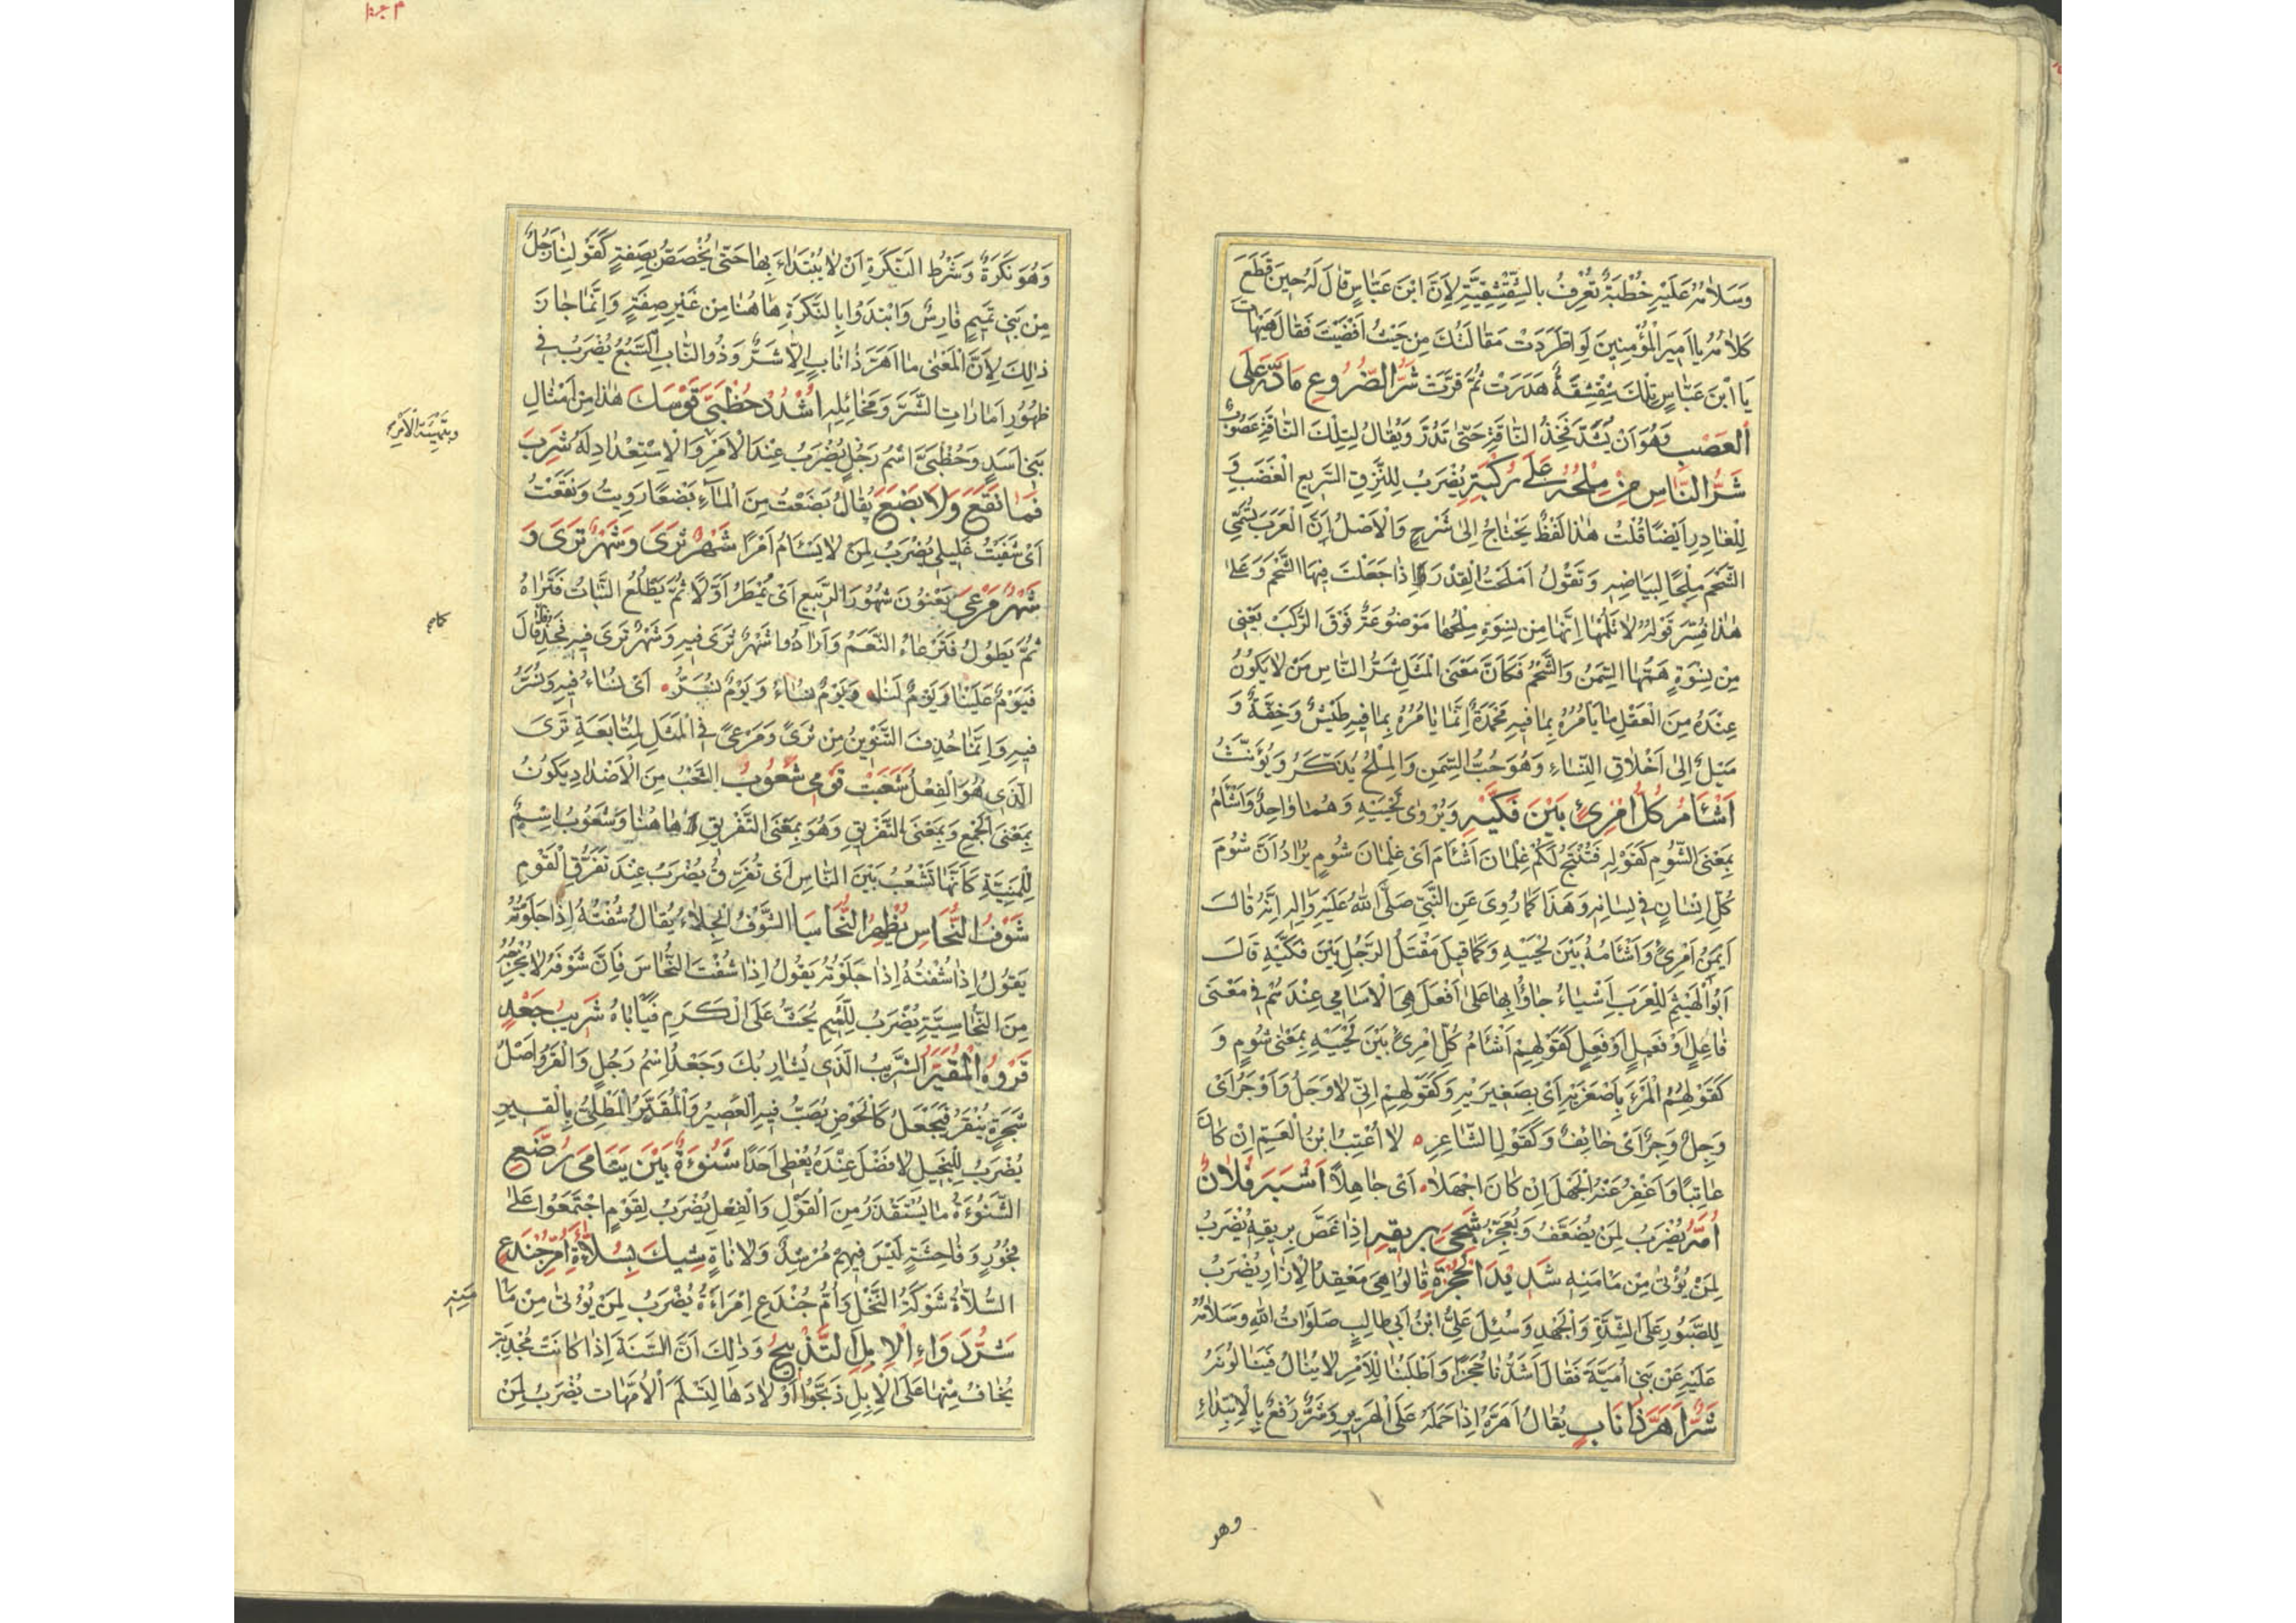 وَسَلَامُهُ عَلَيْهِ خُطْبَةٌ تُعْرَفُ بِالشِّقْشِقِيَّةِ لِاَنَّ ابْنَ عَبَّاسٍ قَالَ لَهُ حِينَ قَطَعَ
كَلَامَهُ يَا اَمِيرَ الْمُؤْمِنِينَ لَوِ اطَّرَدَتْ مَقَالَتُكَ مِنْ حَيْثُ اَفْضَيْتَ فَقَالَ هَيْهَاتَ
يَا ابْنَ عَبَّاسٍ تِلْكَ شِقْشِقَةٌ هَدَرَتْ ثُمَّ قَرَّتْ شَرُّ الضُّرُوعِ مَا دَرَّ عَلَى
الْعَصْبِ وَهُوَ اَنْ يُشَدَّ فَخِذُ النَّاقَةِ حَتَّى تَدُرَّ وَيُقَالُ لِتِلْكَ النَّاقَةِ عَصُوبٌ
شَرُّ النَّاسِ مَنْ مِلْحُهُ عَلَى رُكْبَتِهِ يُضْرَبُ لِلنَّزِقِ السَّرِيعِ الْغَضَبِ وَ
لِلْغَادِرِ اَيْضًا قُلْتُ هٰذَا لَفْظٌ يَحْتَاجُ اِلَى شَرْحٍ وَالْاَصْلُ اَنَّ الْعَرَبَ تُسَمِّي
الشَّحْمَ مِلْحًا لِبَيَاضِهِ وَتَقُولُ اَمْلَحْتُ الْقِدْرَ اِذَا جَعَلْتَ فِيهَا الشَّحْمَ وَعَلَى
هٰذَا فُسِّرَ قَوْلُهُ لَا تَلُمْهَا اِنَّهَا مِنْ نِسْوَةٍ مِلْحُهَا مَوْضُوعَةٌ فَوْقَ الرُّكَبْ يَعْنِي
مِنْ نِسْوَةٍ هَمُّهَا السِّمَنُ وَالشَّحْمُ فَكَانَ مَعْنَى الْمَثَلِ شَرُّ النَّاسِ مَنْ لَا يَكُونُ
عِنْدَهُ مِنَ الْعَقْلِ مَا يَأْمُرُهُ بِمَا فِيهِ مَحْمَدَةٌ اِنَّمَا يَأْمُرُهُ بِمَا فِيهِ طَيْشٌ وَخِفَّةٌ وَ
مَيْلٌ اِلَى اَخْلَاقِ النِّسَاءِ وَهُوَ حُبُّ السِّمَنِ وَالْمِلْحُ يُذَكَّرُ وَيُؤَنَّثُ
اَشْأَمُ كُلِّ امْرِئٍ بَيْنَ فَكَّيْهِ وَيُرْوَى لَحْيَيْهِ وَهُمَا وَاحِدٌ وَاَشْأَمُ
بِمَعْنَى الشُّومِ كَقَوْلِهِ فَتُنْتَجْ لَكُمْ غِلْمَانَ اَشْأَمَ اَىْ غِلْمَانَ شُومٍ يُرَادُ اَنَّ شُومَ
كُلِّ اِنْسَانٍ فِي لِسَانِهِ وَهَذَا كَمَا رُوِيَ عَنِ النَّبِيِّ صَلَّى اللهُ عَلَيْهِ وَاٰلِهِ اِنَّهُ قَالَ
اَيْمَنُ امْرِئٍ وَاَشْأَمُهُ بَيْنَ لَحْيَيْهِ وَكَمَا قِيلَ مَقْتَلُ الرَّجُلِ بَيْنَ فَكَّيْهِ قَالَ
اَبُو الْهَيْثَمِ لِلْعَرَبِ اَشْيَاءُ جَاؤُا بِهَا عَلَى اَفْعَلَ هِيَ الْاَسَامِي عِنْدَهُمْ فِي مَعْنَى
فَاعِلٍ اَوْ فَعِيلٍ اَوْ فَعِلٍ كَقَوْلِهِمْ اَشْأَمُ كُلِّ امْرِئٍ بَيْنَ لَحْيَيْهِ بِمَعْنَى شُومٍ وَ
كَقَوْلِهِمْ الْمَرْءُ بِاَصْغَرَيْهِ اَىْ بِصَغِيرَيْهِ وَكَقَوْلِهِمْ اِنِّي لَاَوْجَلُ وَاَوْجَرُ اَىْ
وَجِلٌ وَجِرٌ اَىْ خَائِفٌ وَكَقَوْلِ الشَّاعِرِ لَا اُعْتِبُ ابْنَ الْعَمِّ اِنْ كَانَ
عَاتِبًا وَاَغْفِرُ عَنْهُ الْجَهْلَ اِنْ كَانَ اَجْهَلَا اَىْ جَاهِلًا اَشْبَهَ فُلَانٌ
اُمَّهُ يُضْرَبُ لِمَنْ يُضَعَّفُ وَيُعَجَّزُ شَجِيَ بِرِيقِهِ اِذَا غَصَّ بِرِيقِهِ يُضْرَبُ
لِمَنْ يُؤْتَى مِنْ مَأْمَنِهِ شَدِيدُ الْحُجْزَةِ قَالُوا هِيَ مَعْقِدُ الْاِزَارِ يُضْرَبُ
لِلصَّبُورِ عَلَى الشِّدَّةِ وَالْجَهْدِ وَسُئِلَ عَلِيُّ ابْنُ اَبِي طَالِبٍ صَلَوَاتُ اللهِ وَسَلَامُهُ
عَلَيْهِ عَنْ بَنِي اُمَيَّةَ فَقَالَ اَشَدُّنَا حُجَزًا وَاَطْلَبُنَا لِلْاَمْرِ لَا يُنَالُ فَيَنَالُونَهُ
شَرٌّ اَهَرَّ ذَا نَابٍ يُقَالُ اَهَرَّهُ اِذَا حَمَلَهُ عَلَى الْهَرِيرِ وَشَرٌّ رَفْعٌ بِالْاِبْتِدَاءِ
وهو
وَهُوَ نَكِرَةٌ وَشَرْطُ النَّكِرَةِ اَنْ لَا يُبْتَدَاءَ بِهَا حَتَّى تُخَصَّصَ بِصِفَةٍ كَقَوْلِنَا رَجُلٌ
مِنْ بَنِي تَمِيمٍ فَارِسٌ وَابْتَدَؤُا بِالنَّكِرَةِ هَاهُنَا مِنْ غَيْرِ صِفَةٍ وَاِنَّمَا جَازَ
ذٰلِكَ لِاَنَّ الْمَعْنَى مَا اَهَرَّ ذَا نَابٍ اِلَّا شَرٌّ وَذُو النَّابِ السَّبُعُ يُضْرَبُ فِي
ظُهُورِ اَمَارَاتِ الشَّرِّ وَمَخَائِلِهِ اُشْدُدْ حُظُبَّى قَوْسَكَ هٰذَا مِنْ اَمْثَالِ
بَنِي اَسَدٍ وَحُظُبَّى اسْمُ رَجُلٍ يُضْرَبُ عِنْدَ الْاَمْرِ وَالْاِسْتِعْدَادِ لَهُ شَرِبَ
وبتهيئة الامر
فَمَا نَقَعَ وَلَا بَضَعَ يُقَالُ بَضَعْتُ مِنَ الْمَاءِ بَضْعًا رَوِيتُ وَنَقَعْتُ
اَىْ شَفَيْتُ غَلِيلِي يُضْرَبُ لِمَنْ لَا يَسْأَمُ اَمْرًا شَهْرٌ ثَرَى وَشَهْرٌ تَرَى وَ
شَهْرٌ مَرْعَى يَعْنُونَ شُهُورَ الرَّبِيعِ اَىْ يُمْطِرُ اَوَّلًا ثُمَّ يَطْلُعُ النَّبَاتُ فَتَرَاهُ
ثُمَّ يَطُولُ فَتَرْعَاهُ النَّعَمُ وَاَرَادُوا شَهْرٌ ثَرَى فِيهِ وَشَهْرٌ تَرَى فِيهِ فَحُذِفَ قَالَ
فَيَوْمٌ عَلَيْنَا وَيَوْمٌ لَنَا وَيَوْمٌ نُسَاءُ وَيَوْمٌ نُسَرُّ اَىْ نُسَاءُ فِيهِ وَنُسَرُّ
فِيهِ وَاِنَّمَا حُذِفَ التَّنْوِينُ مِنْ ثَرًى وَمَرْعًى فِي الْمَثَلِ لِمُتَابَعَةِ تَرَى
الَّذِي هُوَ الْفِعْلُ شَعَبَتْ قَوْمِي شَعُوبُ الشَّعْبُ مِنَ الْاَضْدَادِ يَكُونُ
بِمَعْنَى الْجَمْعِ وَبِمَعْنَى التَّفْرِيقِ وَهُوَ بِمَعْنَى التَّفْرِيقِ هَاهُنَا وَشَعُوبُ اسْمٌ
لِلْمَنِيَّةِ كَاَنَّهَا تَشْعَبُ بَيْنَ النَّاسِ اَىْ تُفَرِّقُ يُضْرَبُ عِنْدَ تَفَرُّقِ الْقَوْمِ
شَوْفُ النُّحَاسِ يُظْهِرُ النُّحَاسَا الشَّوْفُ الْجِلَاءُ يُقَالُ شُفْتُهُ اِذَا جَلَوْتُهُ
يَقُولُ اِذَا شُفْتُهُ اِذَا جَلَوْتُهُ يَقُولُ اِذَا شُفْتَ النُّحَاسَ فَاِنَّ شَوْفَهُ لَا يُخْرِجُهُ
مِنَ النُّحَاسِيَّةِ يُضْرَبُ لِلَّئِيمِ يُحَثُّ عَلَى الْكَرَمِ فَيَأْبَاهُ شَرِيبُ جَعْلٍ
قَرْوُهُ الْمُقَيَّرُ الشَّرِيبُ الَّذِي يُشَارِبُكَ وَجَعْلٌ اِسْمُ رَجُلٍ وَالْقَرْوُ اَصْلُ
شَجَرَةٍ يُنْقَرُ فَيُجْعَلُ كَالْحَوْضِ يُصَبُّ فِيهِ الْعَصِيرُ وَالْمُقَيَّرُ الْمَطْلِيُّ بِالْقِيرِ
يُضْرَبُ لِلْبَخِيلِ لَا فَضْلَ عِنْدَهُ يُعْطِي اَحَدًا شَنُوءَةٌ بَيْنَ يَتَامَى رُضَّعٍ
الشَّنُوءَةُ مَا يُسْتَقْذَرُ مِنَ الْقَوْلِ وَالْفِعْلِ يُضْرَبُ لِقَوْمٍ اجْتَمَعُوا عَلَى
فُجُورٍ وَفَاحِشَةٍ لَيْسَ فِيهِمْ مُرْشِدٌ وَلَا نَاهٍ شِيكَ بِسُلَّاءَةِ اُمِّ جُنْدَعٍ
السُّلَاءَةُ شَوْكَةُ النَّخْلِ وَاُمُّ جُنْدَعٍ اِمْرَاَةٌ يُضْرَبُ لِمَنْ يُؤْتَى مِنْ مَا
مَنِهِ
شَرُّ دَوَاءِ الْاِبِلِ التَّذْبِيحُ وَذٰلِكَ اَنَّ السَّنَةَ اِذَا كَانَتْ مُجْدِبَةً
يُخَافُ مِنْهَا عَلَى الْاِبِلِ ذَبَّحُوا اَوْلَادَهَا لِتَسْلَمَ الْاُمَّهَاتُ يُضْرَبُ لِمَنْ